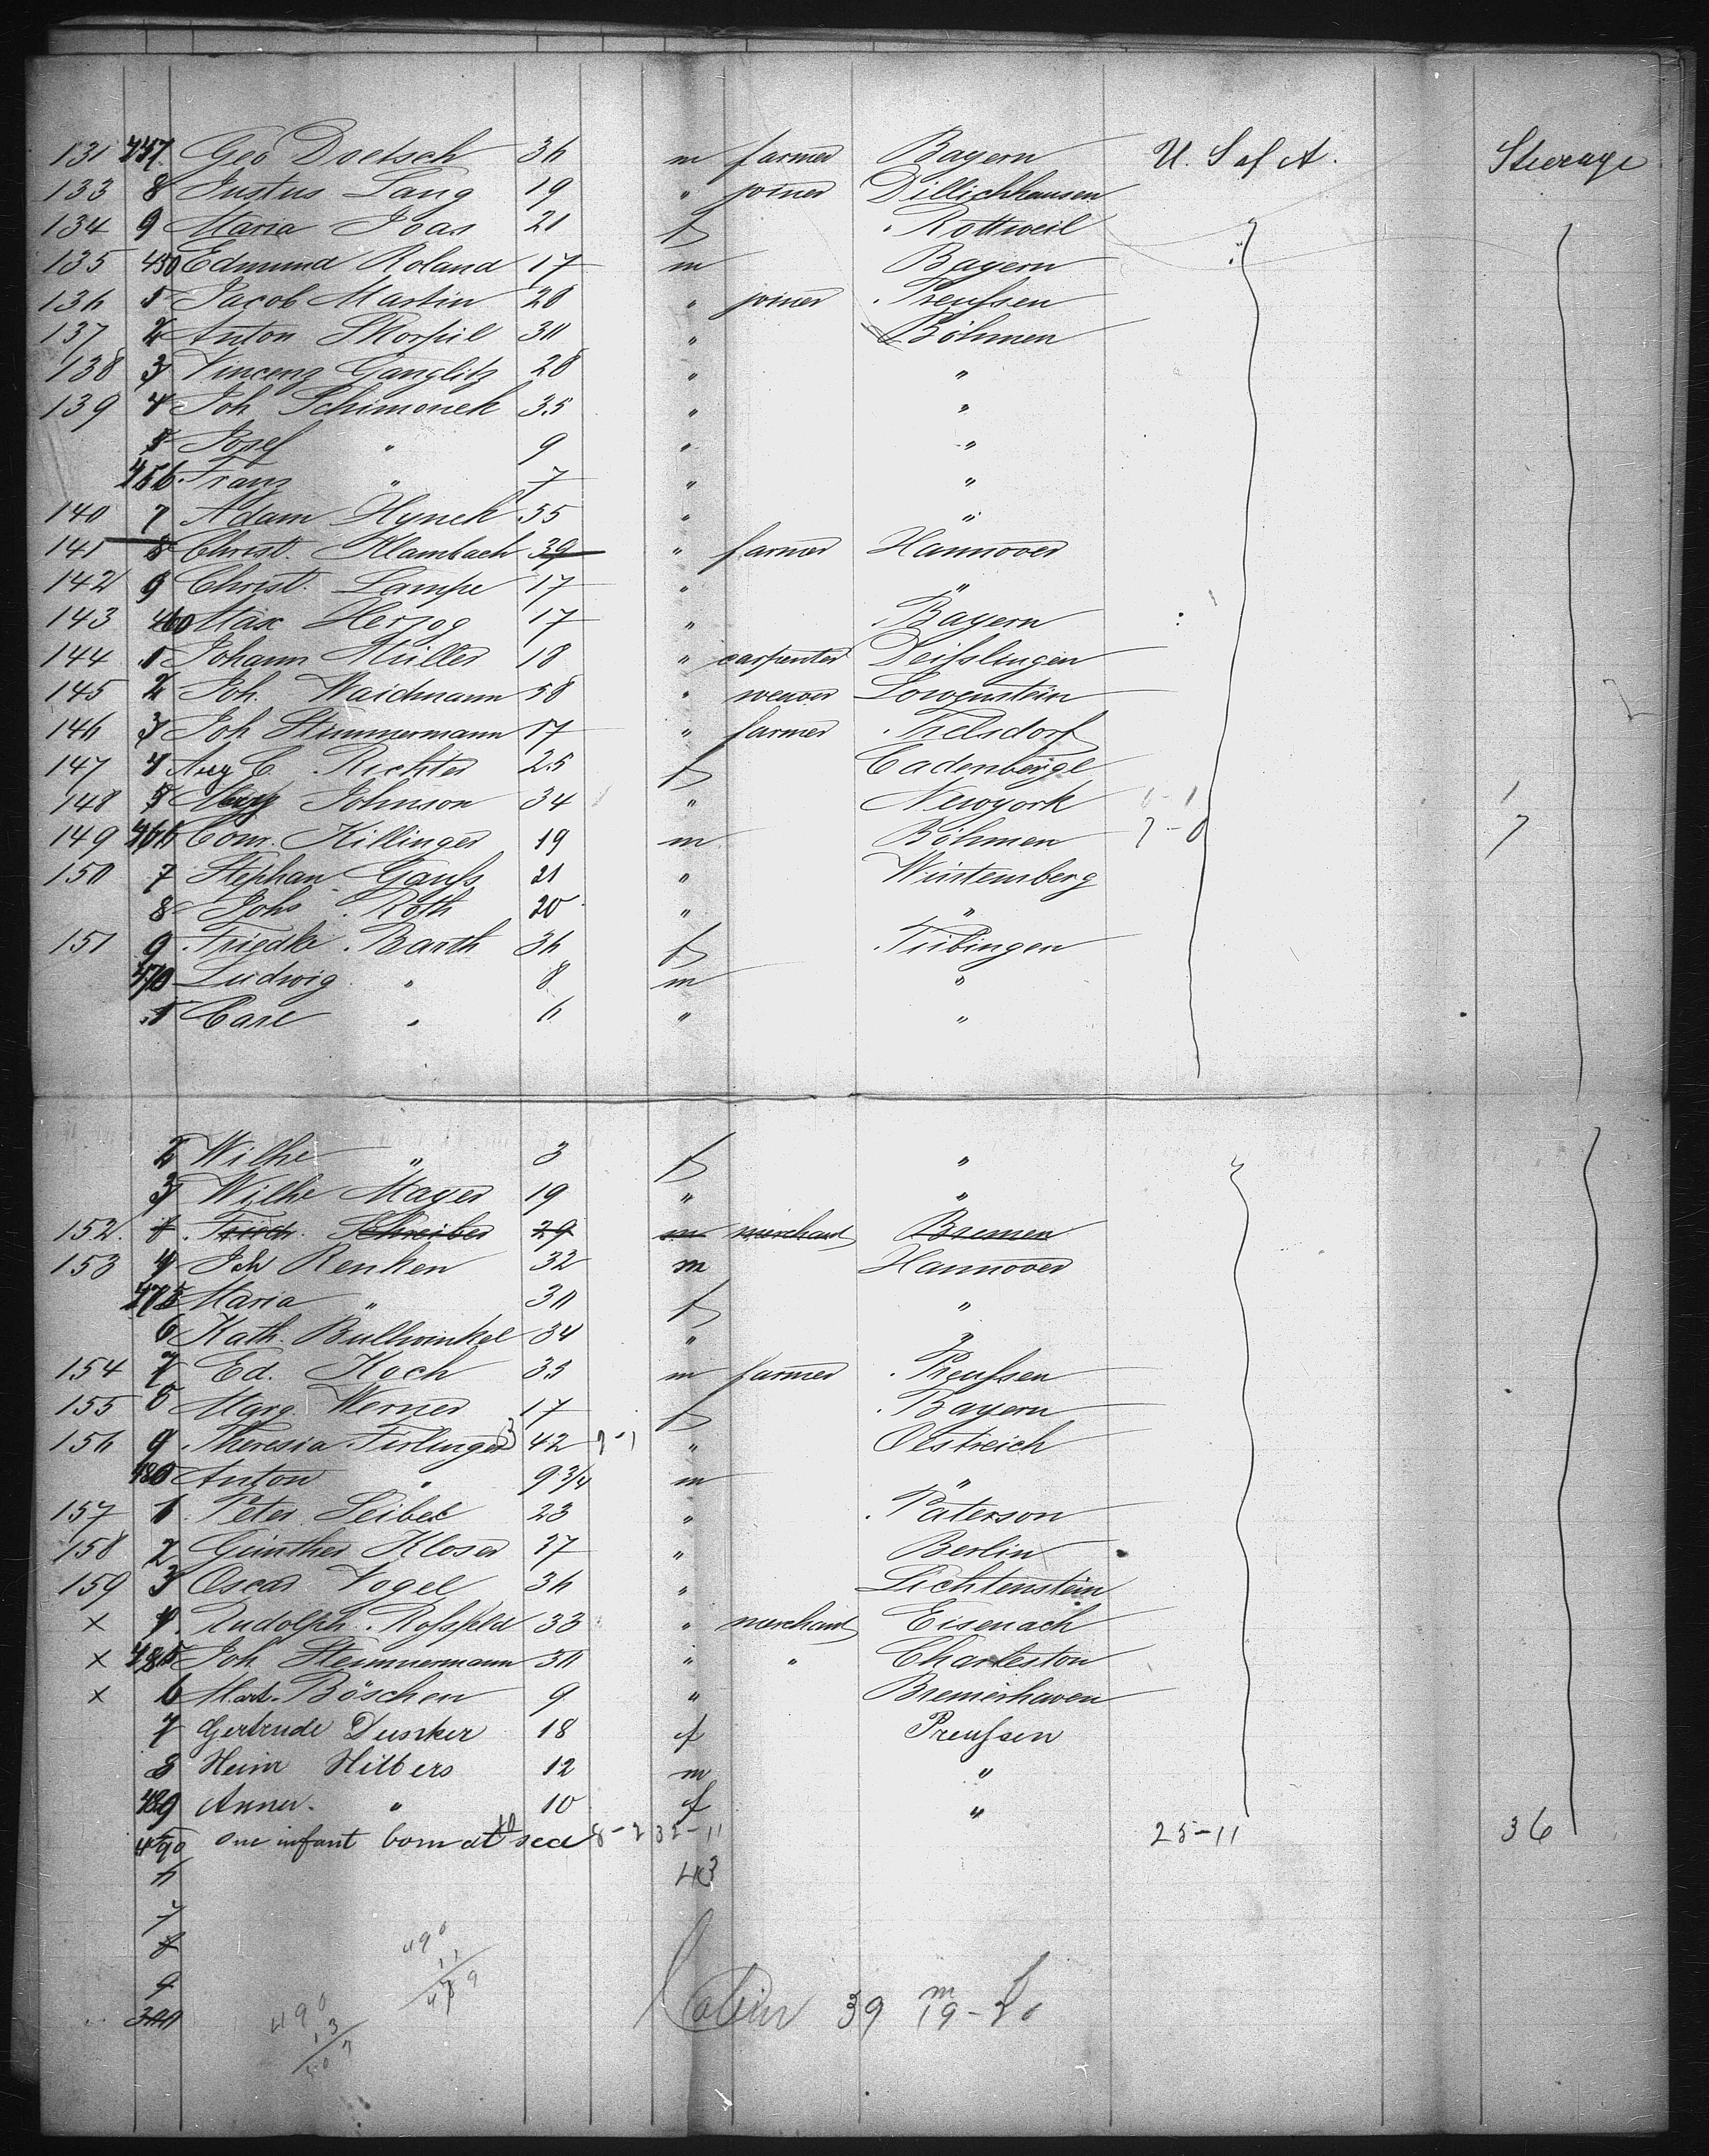 131 447 Geo Doetsch 36 m farmer Bayern U. S of A. Steerage
133 8 Justus Lang 19 " joiner Dillichhausen
134 9 Maria Joas 21 f Rottweil
135 450 Edmund Roland 17 m Bayern
136 1 Jacob Martin 28 " joiner Preußen
137 2 Anton Skorpil 30 " Böhmen
138 3 Vincenz Ganglitz 28 " "
139 4 Joh. Schimonek 35 " "
5 Josef " 9 " "
456 Franz " 7 " "
140 7 Adam Hynek 55 " "
141 8 Christ. Klambach 39 " farmer Hannover
142 9 Christ. Lampe 17 " "
143 460 Max Herzog 17 " Bayern
144 1 Johann Müller 18 " carpenter Deißlingen
145 2 Joh. Waidmann 58 " weaver Lowenstein
146 3 Joh Stimmermann 17 " farmer
147 4 Aug C. Richter 25 f Cadenberge
148 5 Johnson 34 " Newyork 1
149 466 Conr. Killinger 19 m Böhmen 7-0 7
150 7 Stephan Gauß 21 " Würtemberg
8 Johs Roth 20 " "
151 9 Friedke Barth 36 f Tübingen
470 Ludwig " 8 m "
1 Carl " 6 " "
2 Wilhe " 3 f "
3 Wilhe Mayer 19 " "
152. Friedr. Schreiber 29 m merchant Bremen
153 4 Joh Renken 32 m Hannover
475 Maria " 30 f "
6 Kath. Bullwinkel 34 " "
154 7 Ed. Koch 35 m farmer Preußen
155 8 Marg. Werner 17 f Bayern
156 9 Theresia Firlinger 42 " Oestreich
480 Anton " 9 3/4 m "
157 1 Peter Seibel 23 " Paterson
158 2 Günther Kloser 37 " Berlin
159 3 Oscar Vogel 36 " Lichtenstein
x 4 Rudolph Roßfeld 33 " merchant Eisenach
x 485 Joh Stemmermann 30 " " Charleston
x 6 Mart. Böschen 9 " Bremerhaven
7 Gertrude Dunker 18 f Preußen
8 Heinr Hilbers 12 m "
489 Anna " 10 f "
490 one infant born at sea 8-2 32-11 25-11 36
6 43
7
8
9
300
490
11
479
490
13
Cabin 39 m 19-20